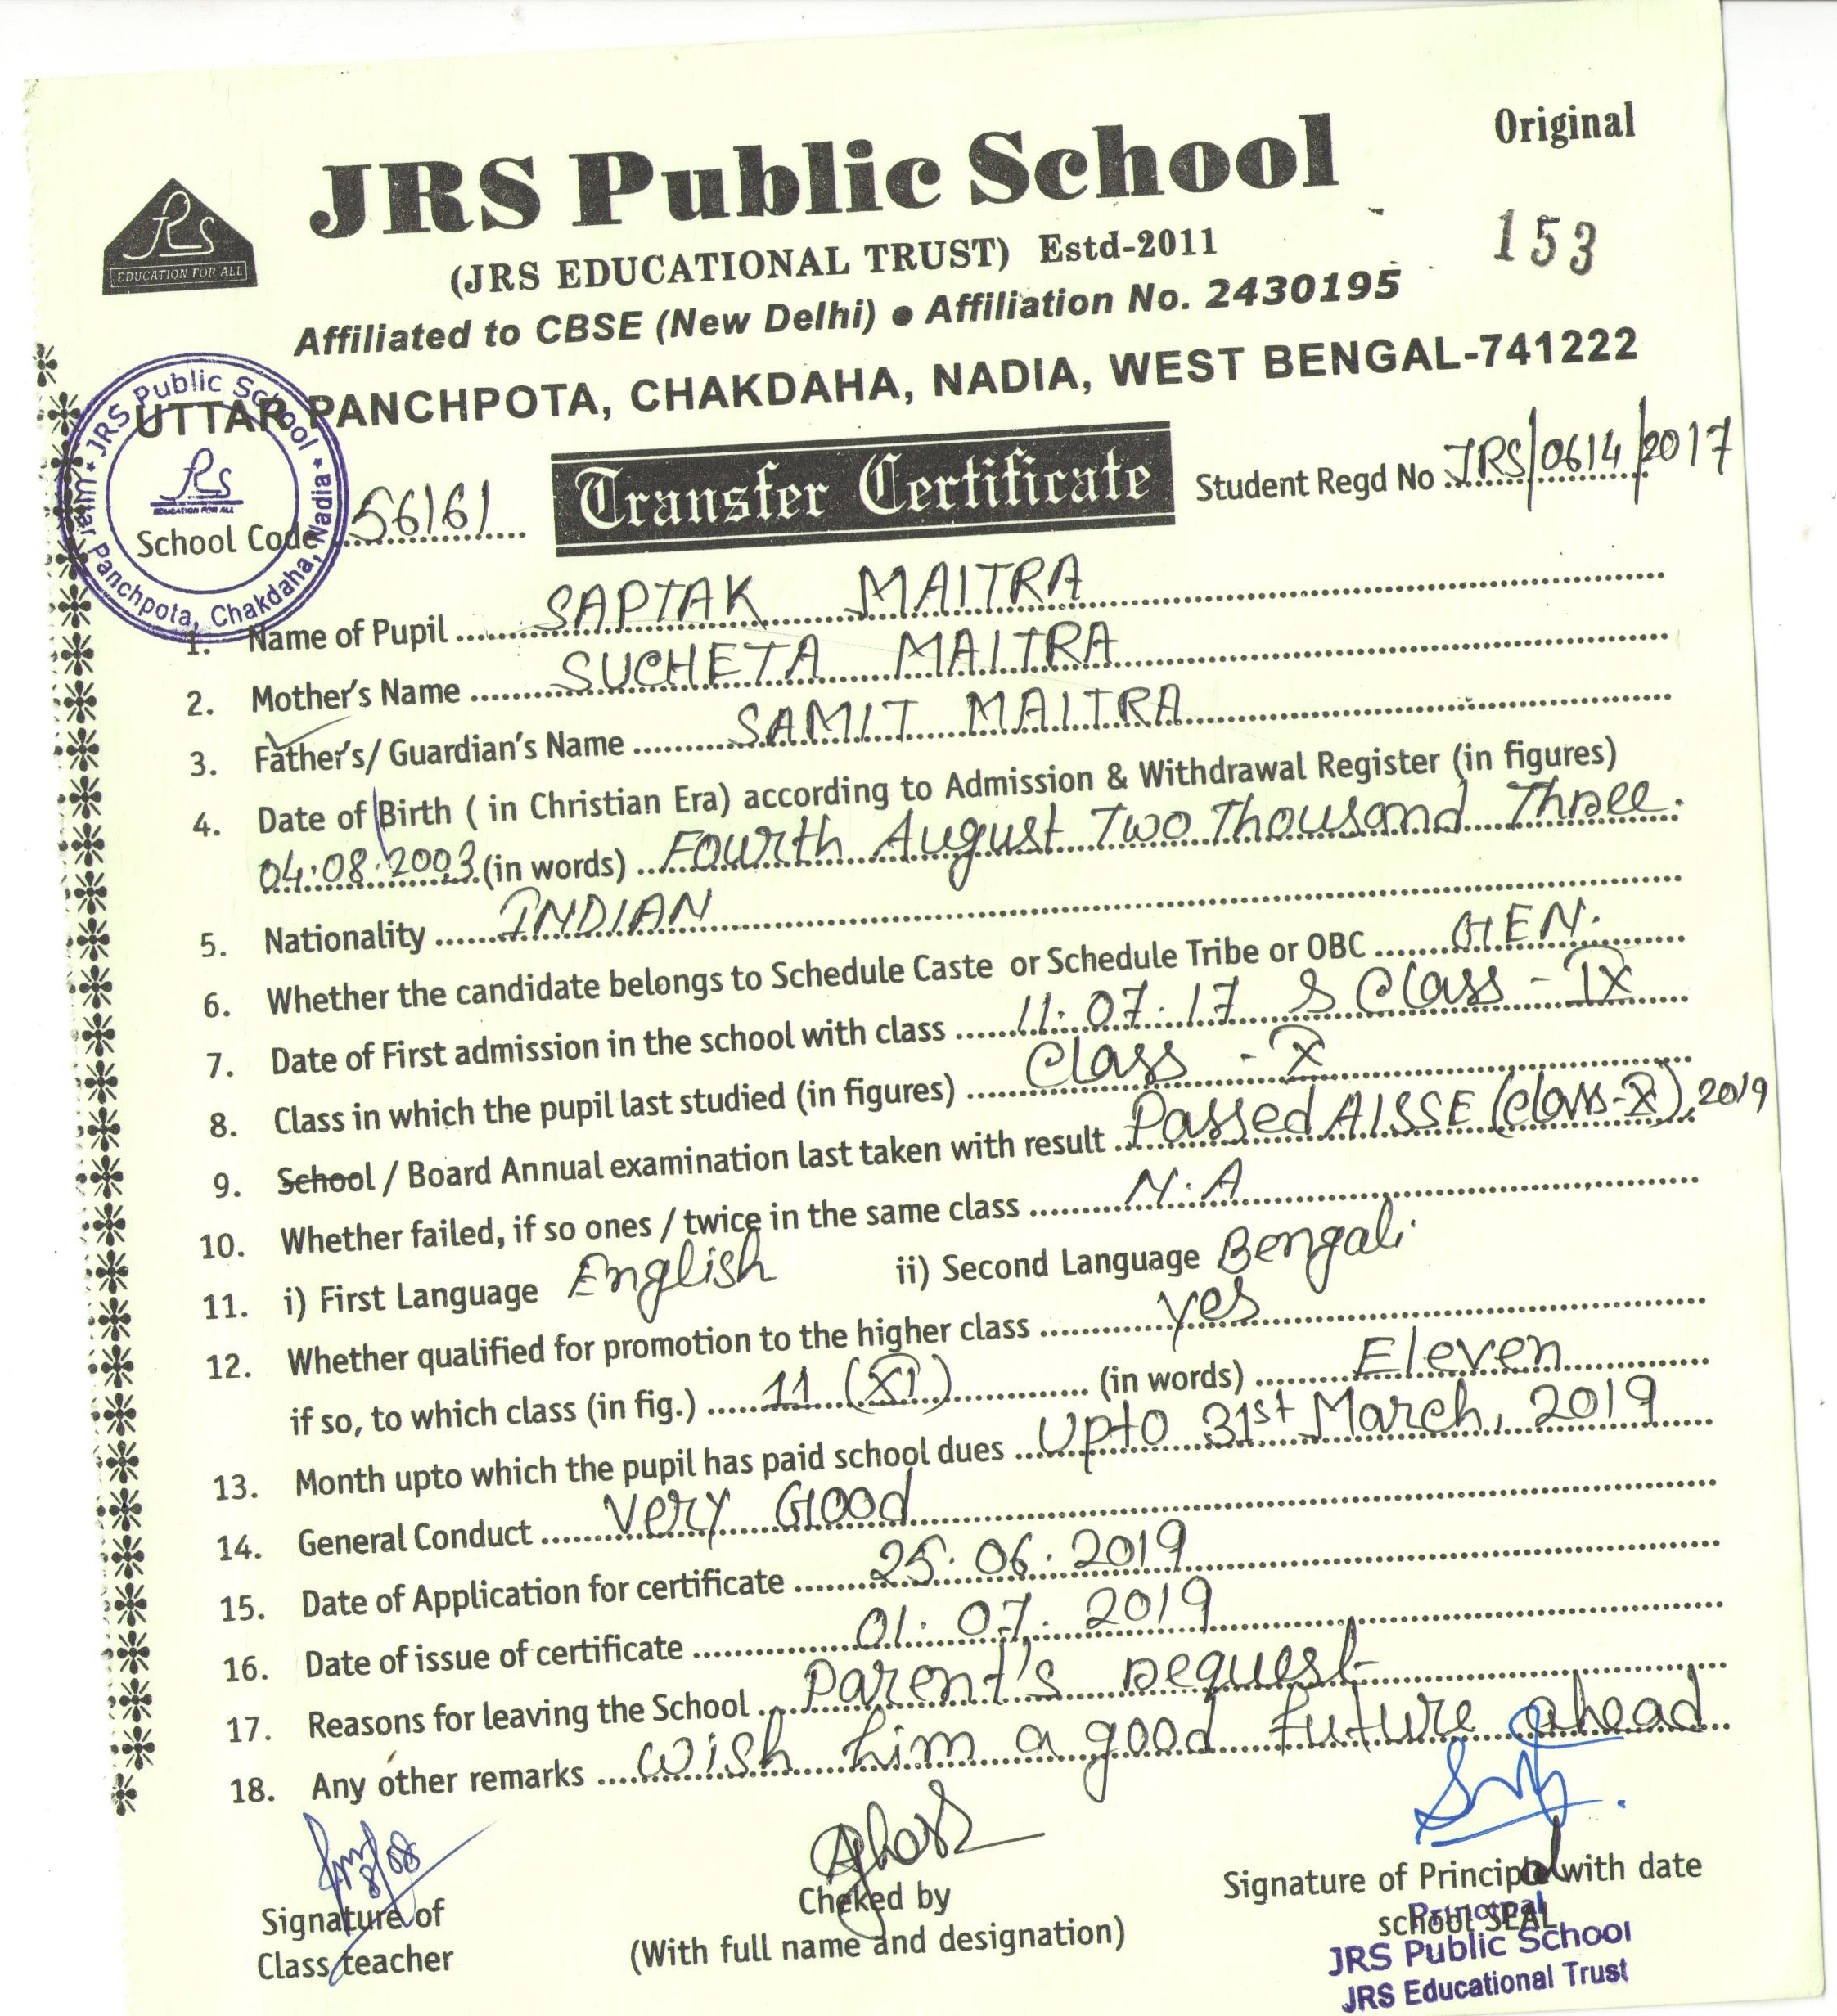 Original
JRS Public School
153
JRS
EDUCATION FOR ALL
(JRS EDUCATIONAL TRUST) Estd-2011
Affiliated to CBSE (New Delhi) ● Affiliation No. 2430195
UTTAR PANCHPOTA, CHAKDAHA, NADIA, WEST BENGAL-741222
JRS Public School ★ Uttar Panchpota, Chakdaha, Nadia ★
JRS
EDUCATION FOR ALL
School Code 56161 Transfer Certificate Student Regd No JRS/0614/2017
1. Name of Pupil SAPTAK MAITRA
2. Mother's Name SUCHETA MAITRA
3. Father's/ Guardian's Name SAMIT MAITRA
4. Date of Birth ( in Christian Era) according to Admission & Withdrawal Register (in figures)
04.08.2003 (in words) Fourth August Two Thousand Three.
5. Nationality INDIAN
6. Whether the candidate belongs to Schedule Caste or Schedule Tribe or OBC GEN.
7. Date of First admission in the school with class 11.07.17 & Class - IX
8. Class in which the pupil last studied (in figures) Class - X
9. School / Board Annual examination last taken with result Passed AISSE (Class-X), 2019
10. Whether failed, if so ones / twice in the same class N.A
11. i) First Language English ii) Second Language Bengali
12. Whether qualified for promotion to the higher class yes
if so, to which class (in fig.) 11 (XI) (in words) Eleven
13. Month upto which the pupil has paid school dues Upto 31st March, 2019
14. General Conduct Very Good
15. Date of Application for certificate 25.06.2019
16. Date of issue of certificate 01.07.2019
17. Reasons for leaving the School Parent's request
18. Any other remarks wish him a good future ahead
Signature of
Class teacher
Cheked by
(With full name and designation)
Signature of Principal with date
school SEAL
Principal
JRS Public School
JRS Educational Trust